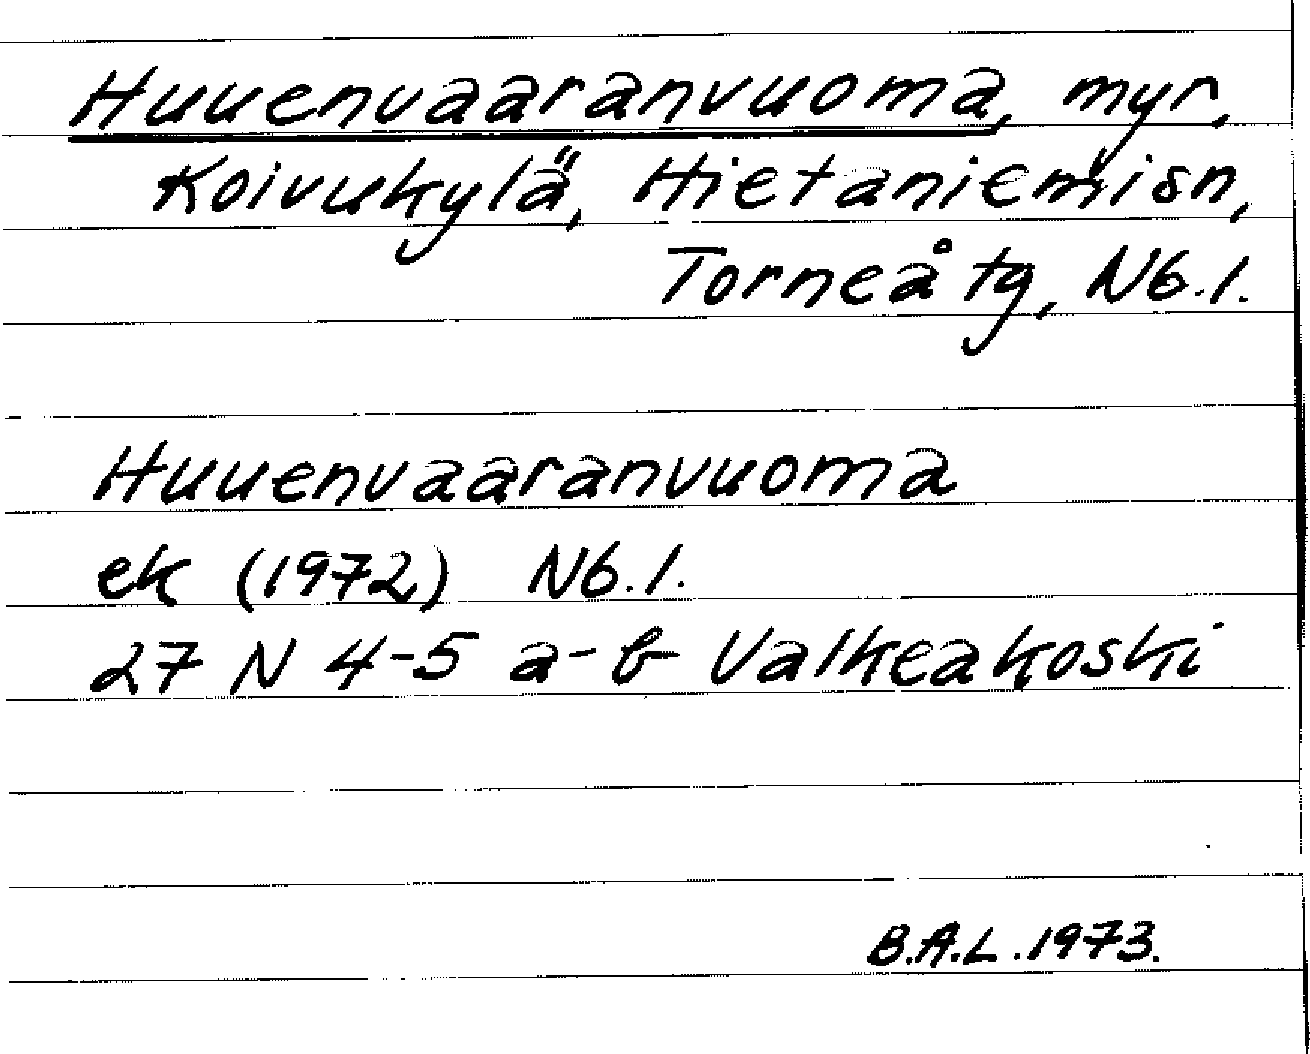 Huuenvaaranvuoma, myr,
Koivukylä, Hietaniemisn,
Torneå tg, Nb.l.
Huuenvaaranvuoma
ek (1972) Nb.l.
27 N 4-5 a-b Valkeakoski
B.A.L. 1973.